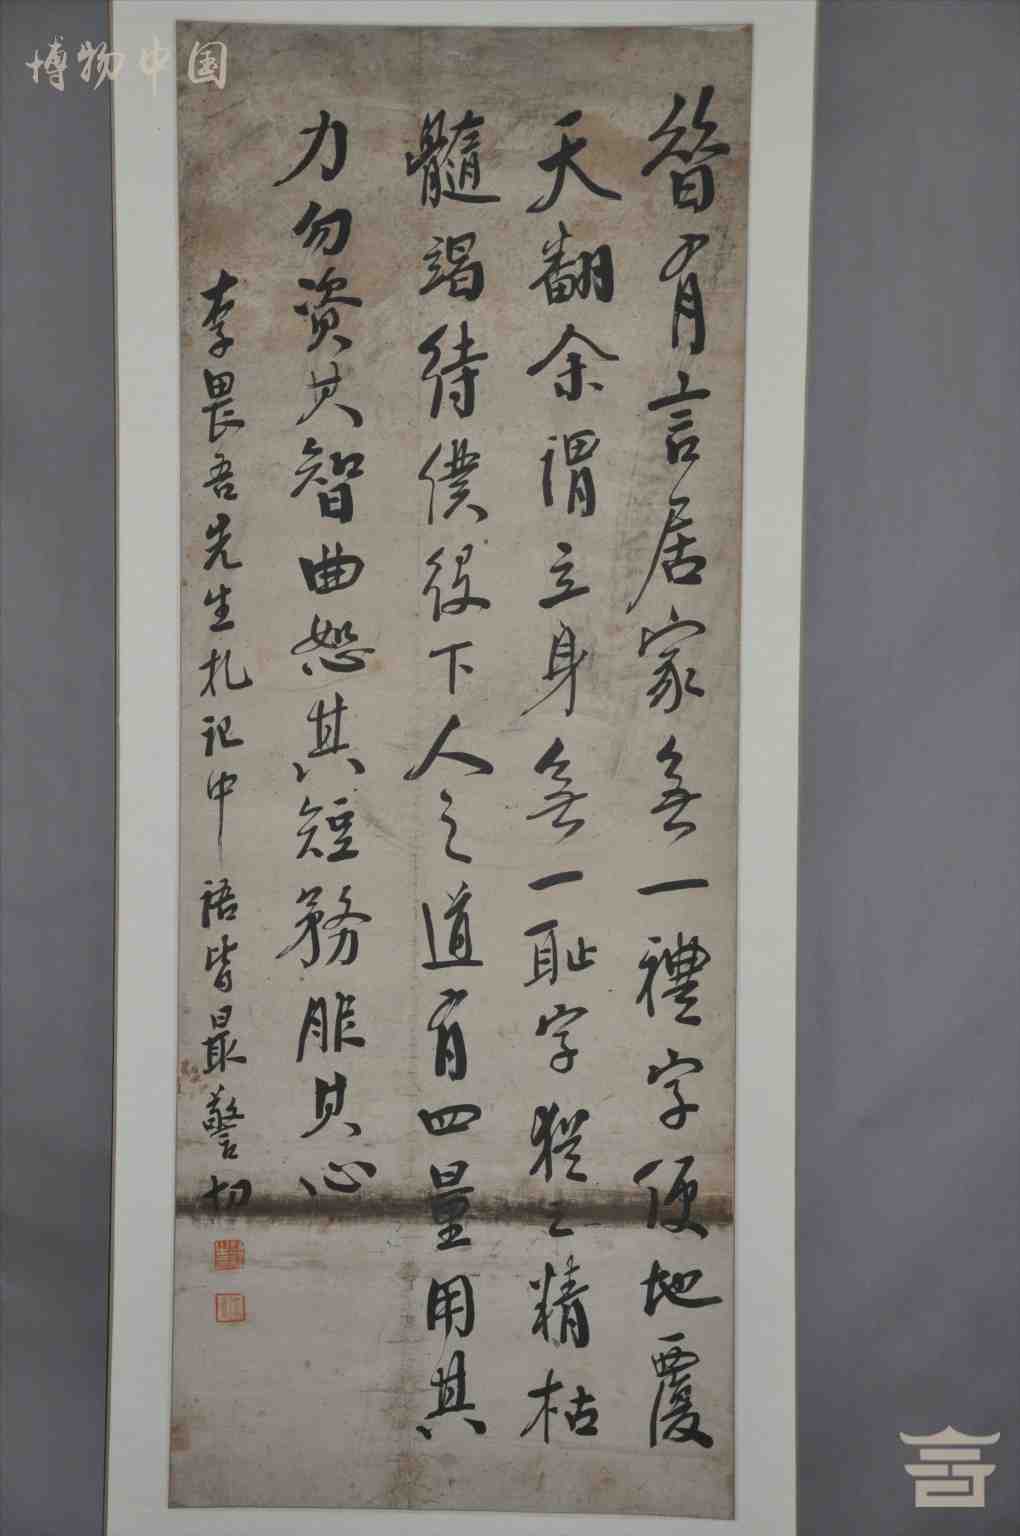 博物中国
昝有言居家無一禮字便地覆
天翻余謂立身無一耻字猶之精枯
髓竭待僕役下人之道有四量用其
力勿資其智曲恕其短務服其心
李畏吾先生札记中語皆最警切